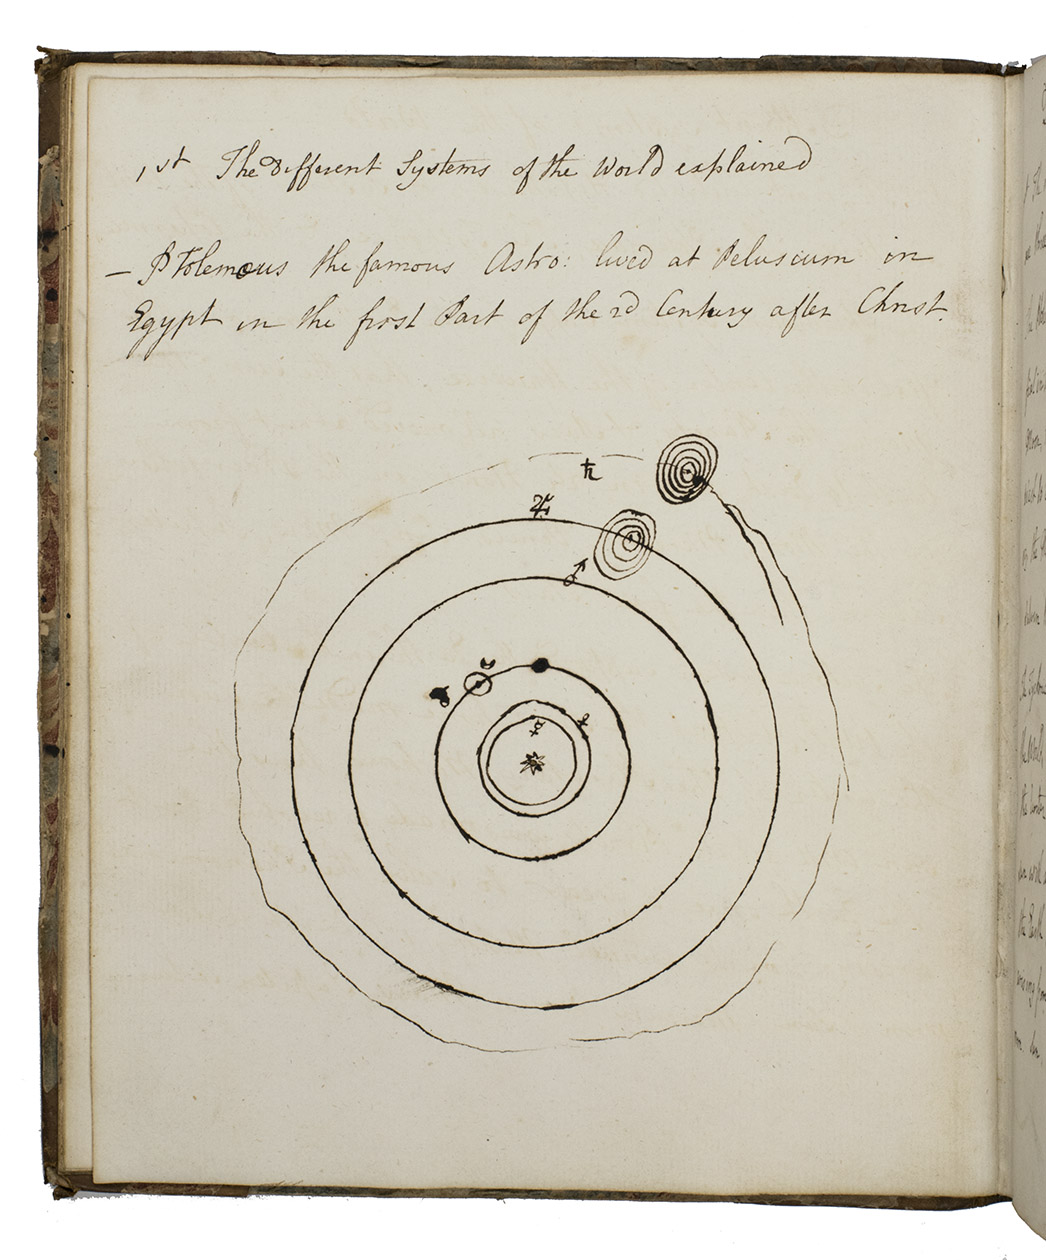 1st The Different Systems of the World explained
– Ptolemous the famous Astro: lived at Pelusium in
Egypt in the first Part of the 2d Century after Christ.
♄
♃
♂
☿
♀